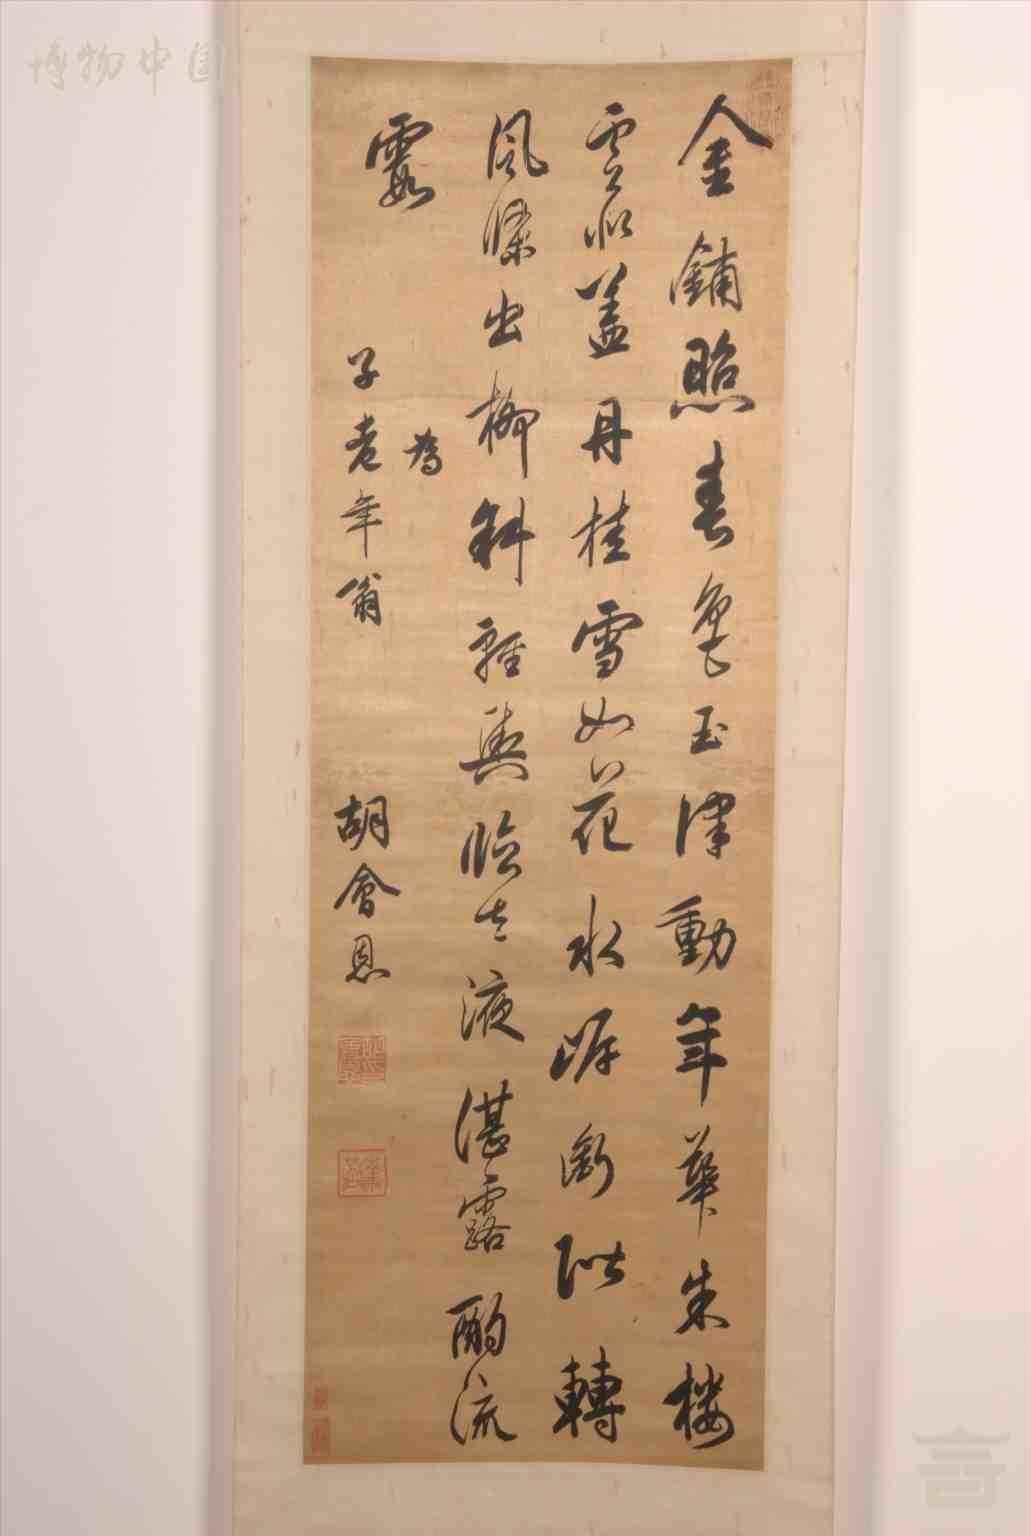 金鋪照春色玉津動年華朱楼
雲似盖丹桂雪如花水岸銜階轉
風條出柳斜軽輿臨太液湛露酌流
霞
為
子老年翁
胡會恩
博物中国